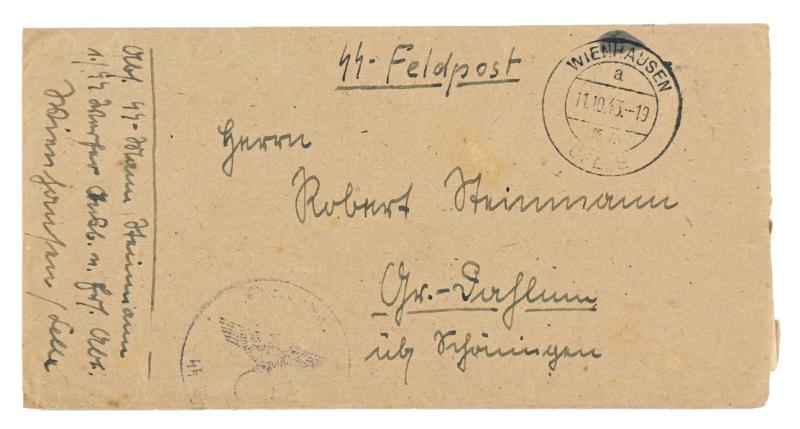 SS-Feldpost
WIENHAUSEN
a
11.10.43.-19
Herrn
Robert Steinmann
Gr.-Dahlum
üb Schöningen
Abs. SS-Mann Steinmann
1./SS Werfer Ausb. u. Ers. Abt.
Wienhausen / Celle
SS